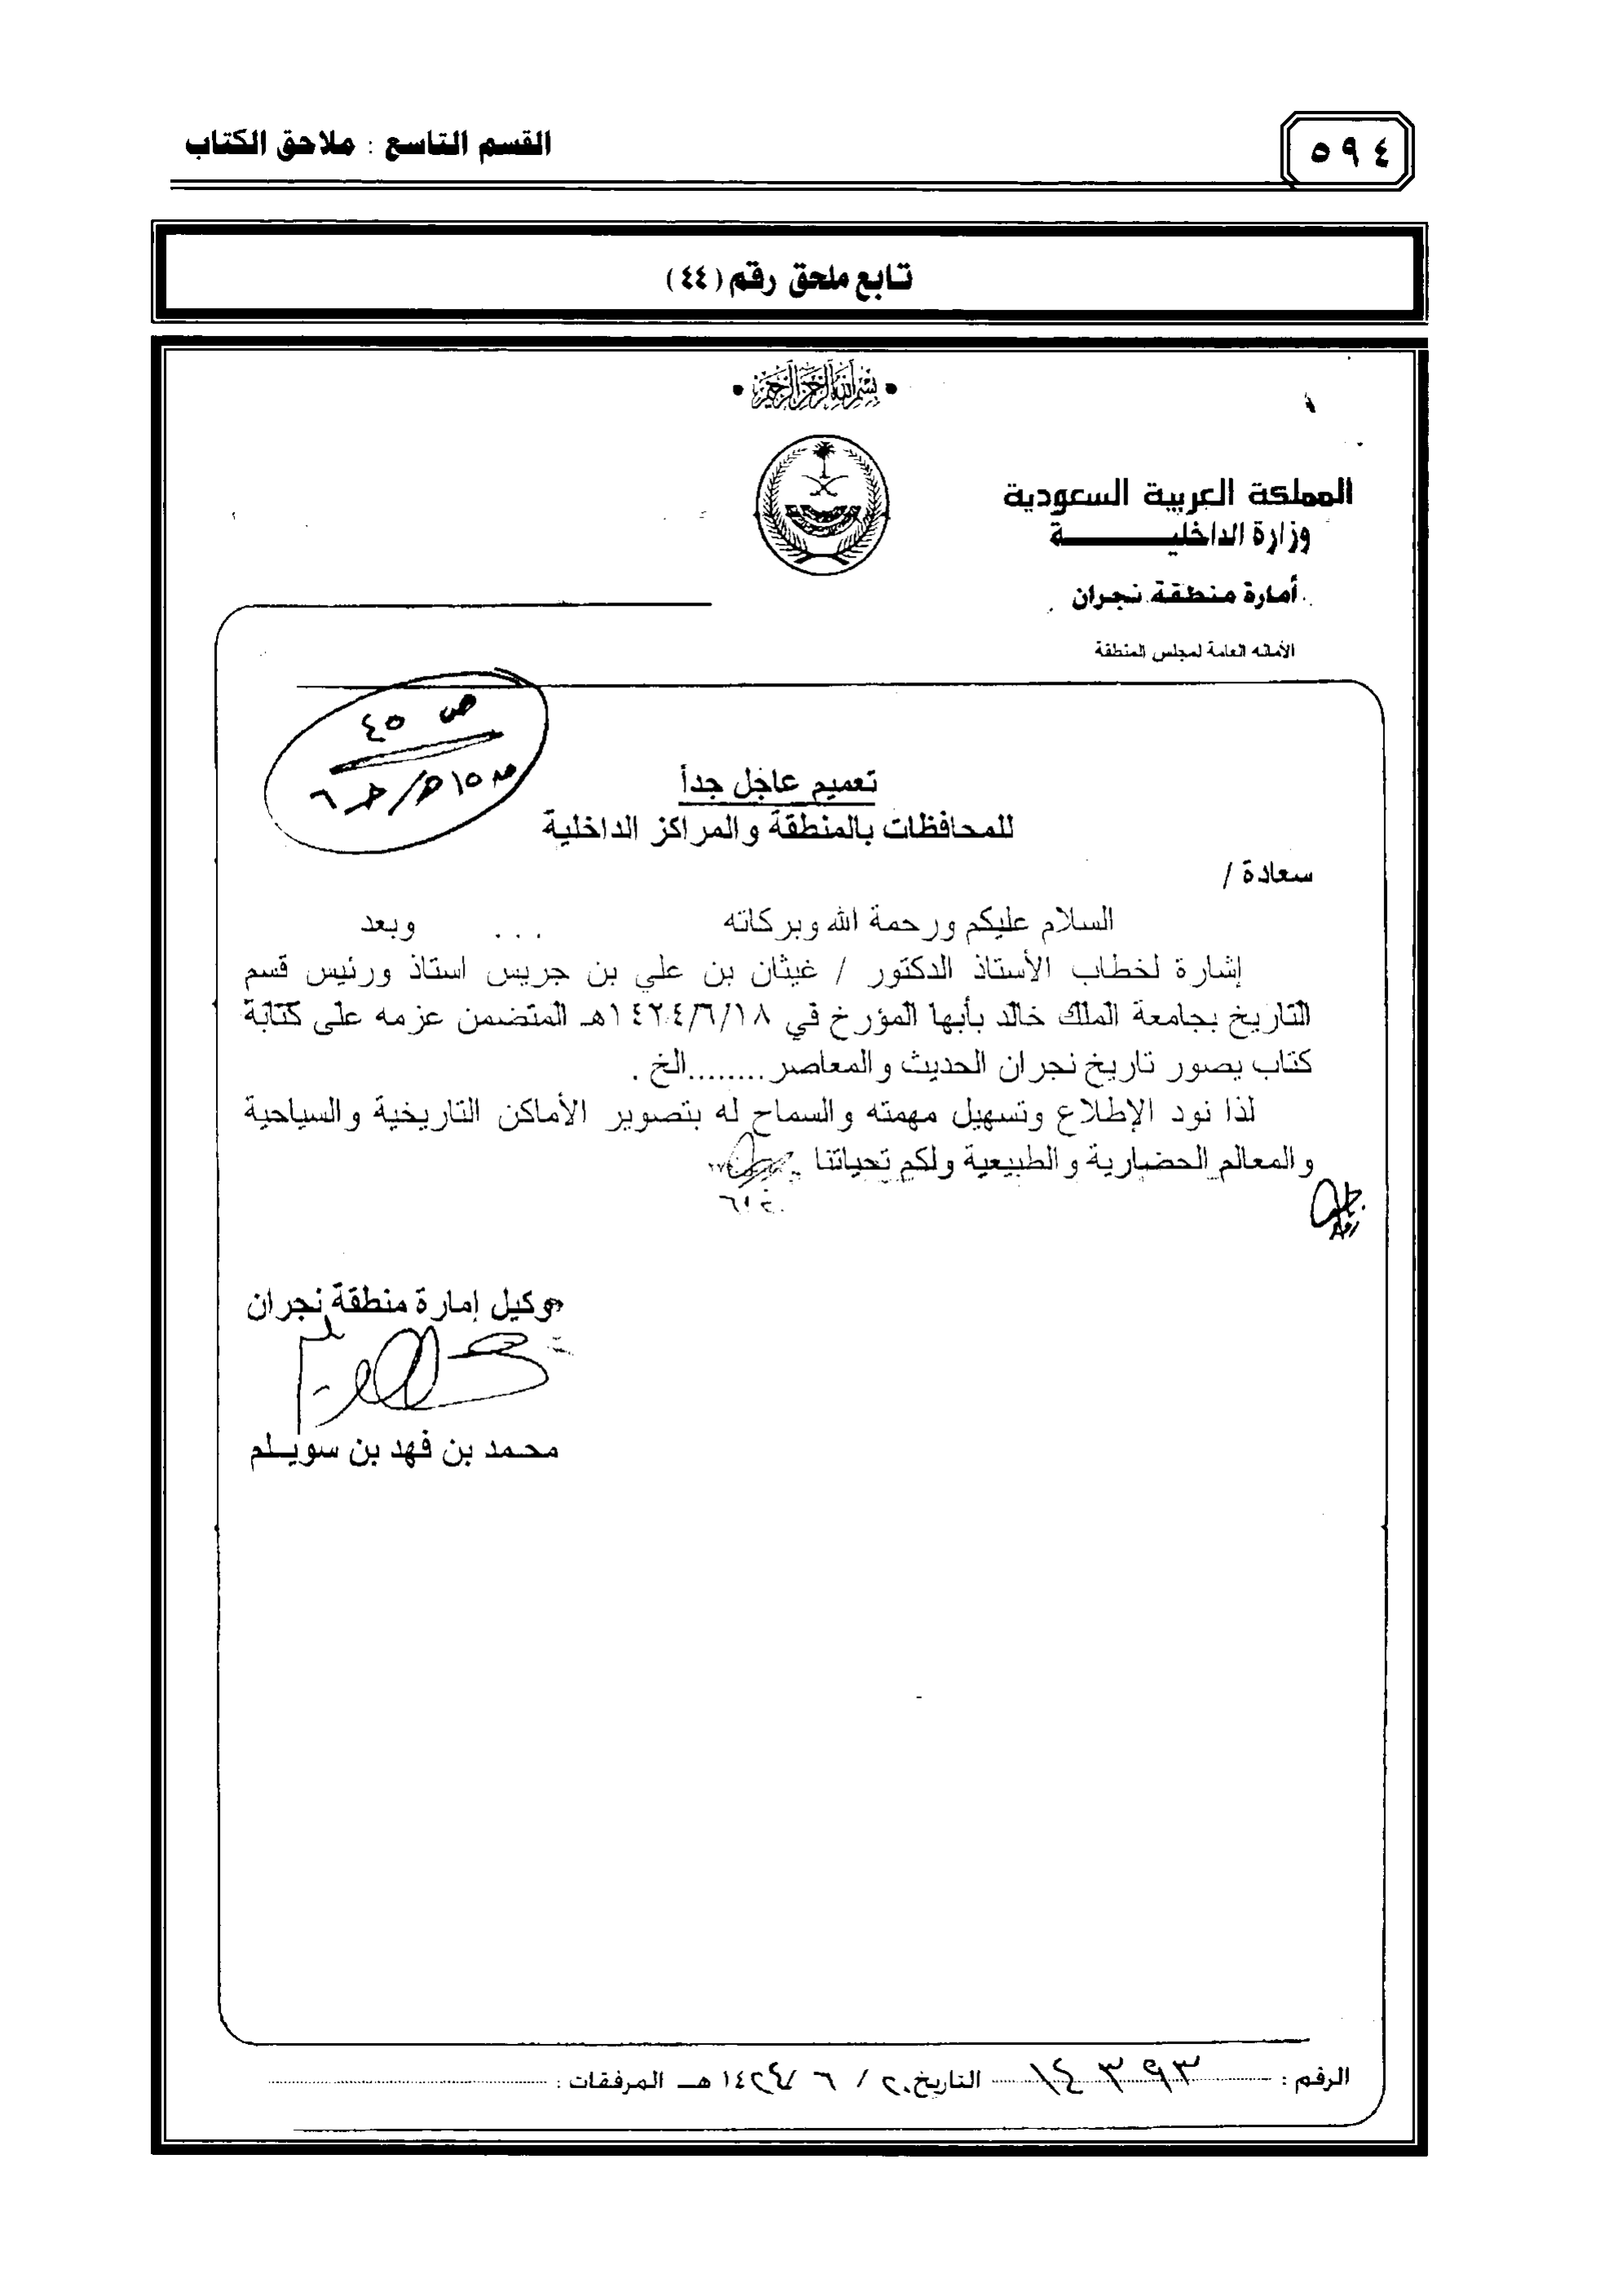 ٥٩٤
القسم التاسع : ملاحق الكتاب
تابع ملحق رقم (٤٤)
بسم الله الرحمن الرحيم
المملكة العربية السعودية
وزارة الداخليـــــــة
أمارة منطقة نجران
الأمانه العامة لمجلس المنطقة
ص ٤٥
تعميم عاجل جداً
للمحافظات بالمنطقة والمراكز الداخلية
سعادة /
السلام عليكم ورحمة الله وبركاته ... وبعد
إشارة لخطاب الأستاذ الدكتور / غيثان بن علي بن جريس استاذ ورئيس قسم
التاريخ بجامعة الملك خالد بأبها المؤرخ في ١٤٢٤/٦/١٨هـ المتضمن عزمه على كتابة
كتاب يصور تاريخ نجران الحديث والمعاصر........الخ .
لذا نود الإطلاع وتسهيل مهمته والسماح له بتصوير الأماكن التاريخية والسياحية
والمعالم الحضارية والطبيعية ولكم تحياتنا
وكيل إمارة منطقة نجران
محمد بن فهد بن سويـلم
الرقم : التاريخ ١٤٢٤ هـ المرفقات :